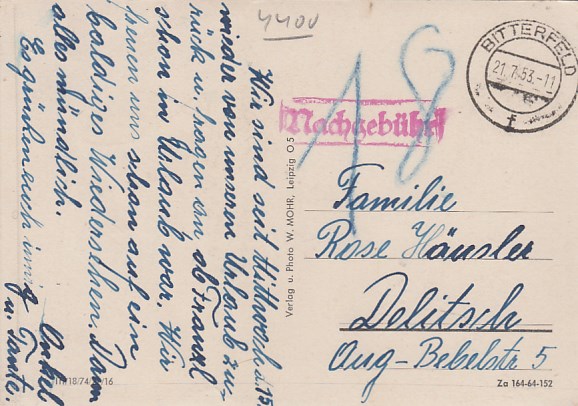 4400
BITTERFELD
21.7.53.-11
f
18
Nachgebühr
Wir sind seit Mittwoch d. 15.
wieder von unserem Urlaub zu-
rück u. fragen an ob Franzl
schon in Urlaub war. Wir
freuen uns schon auf ein
baldiges Wiedersehen. Dann
alles mündlich.
Es grüßen euch innig
Onkel
u. Tante.
Familie
Rose Häusler
Delitsch
Aug-Bebelstr 5
Verlag u. Photo W. MOHR, Leipzig O 5
III/18/74/ /16
Za 164-64-152